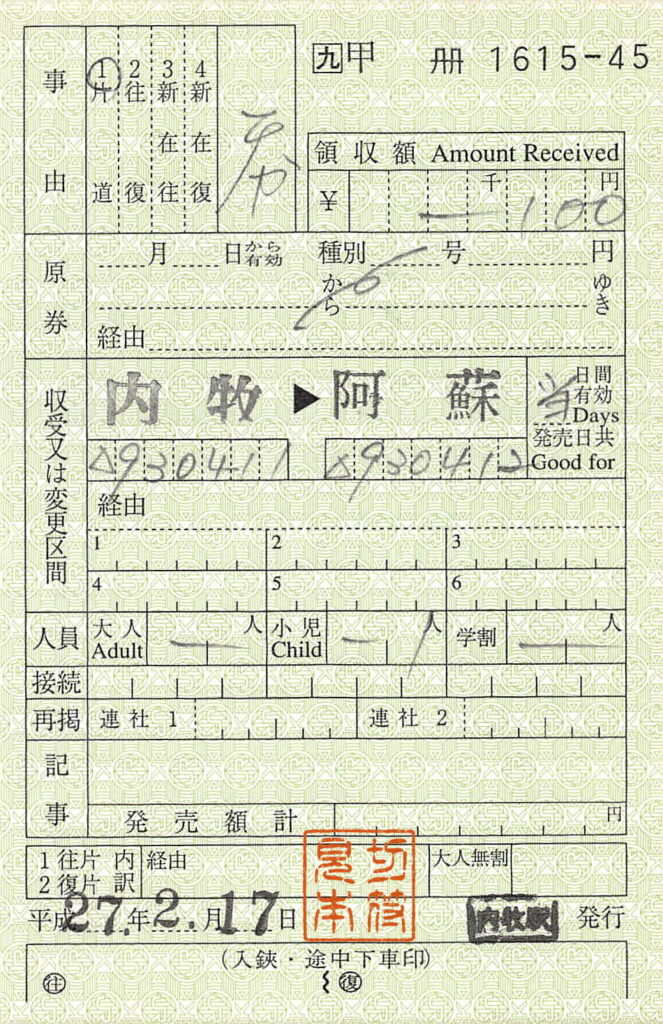 九甲 冊 1615-45
事由
1片道
2往復
3新在往
4新在復
領収額 Amount Received
¥ 千 円
—100
原券
月 日から有効 種別 号 円
から ゆき
経由
収受又は変更区間
内牧▶阿蘇
当 日間有効 Days
発売日共 Good for
△930411 △930412
経由
1 2 3
4 5 6
人員 大人 Adult — 人 小児 Child — 1 人 学割 — 人
接続
再掲 連社 1 連社 2
記事
発売額計 円
1往片 内 経由 大人無割
2復片 訳
切符見本
平成27.年2.月17日 内牧駅 発行
(入鋏・途中下車印)
往 復